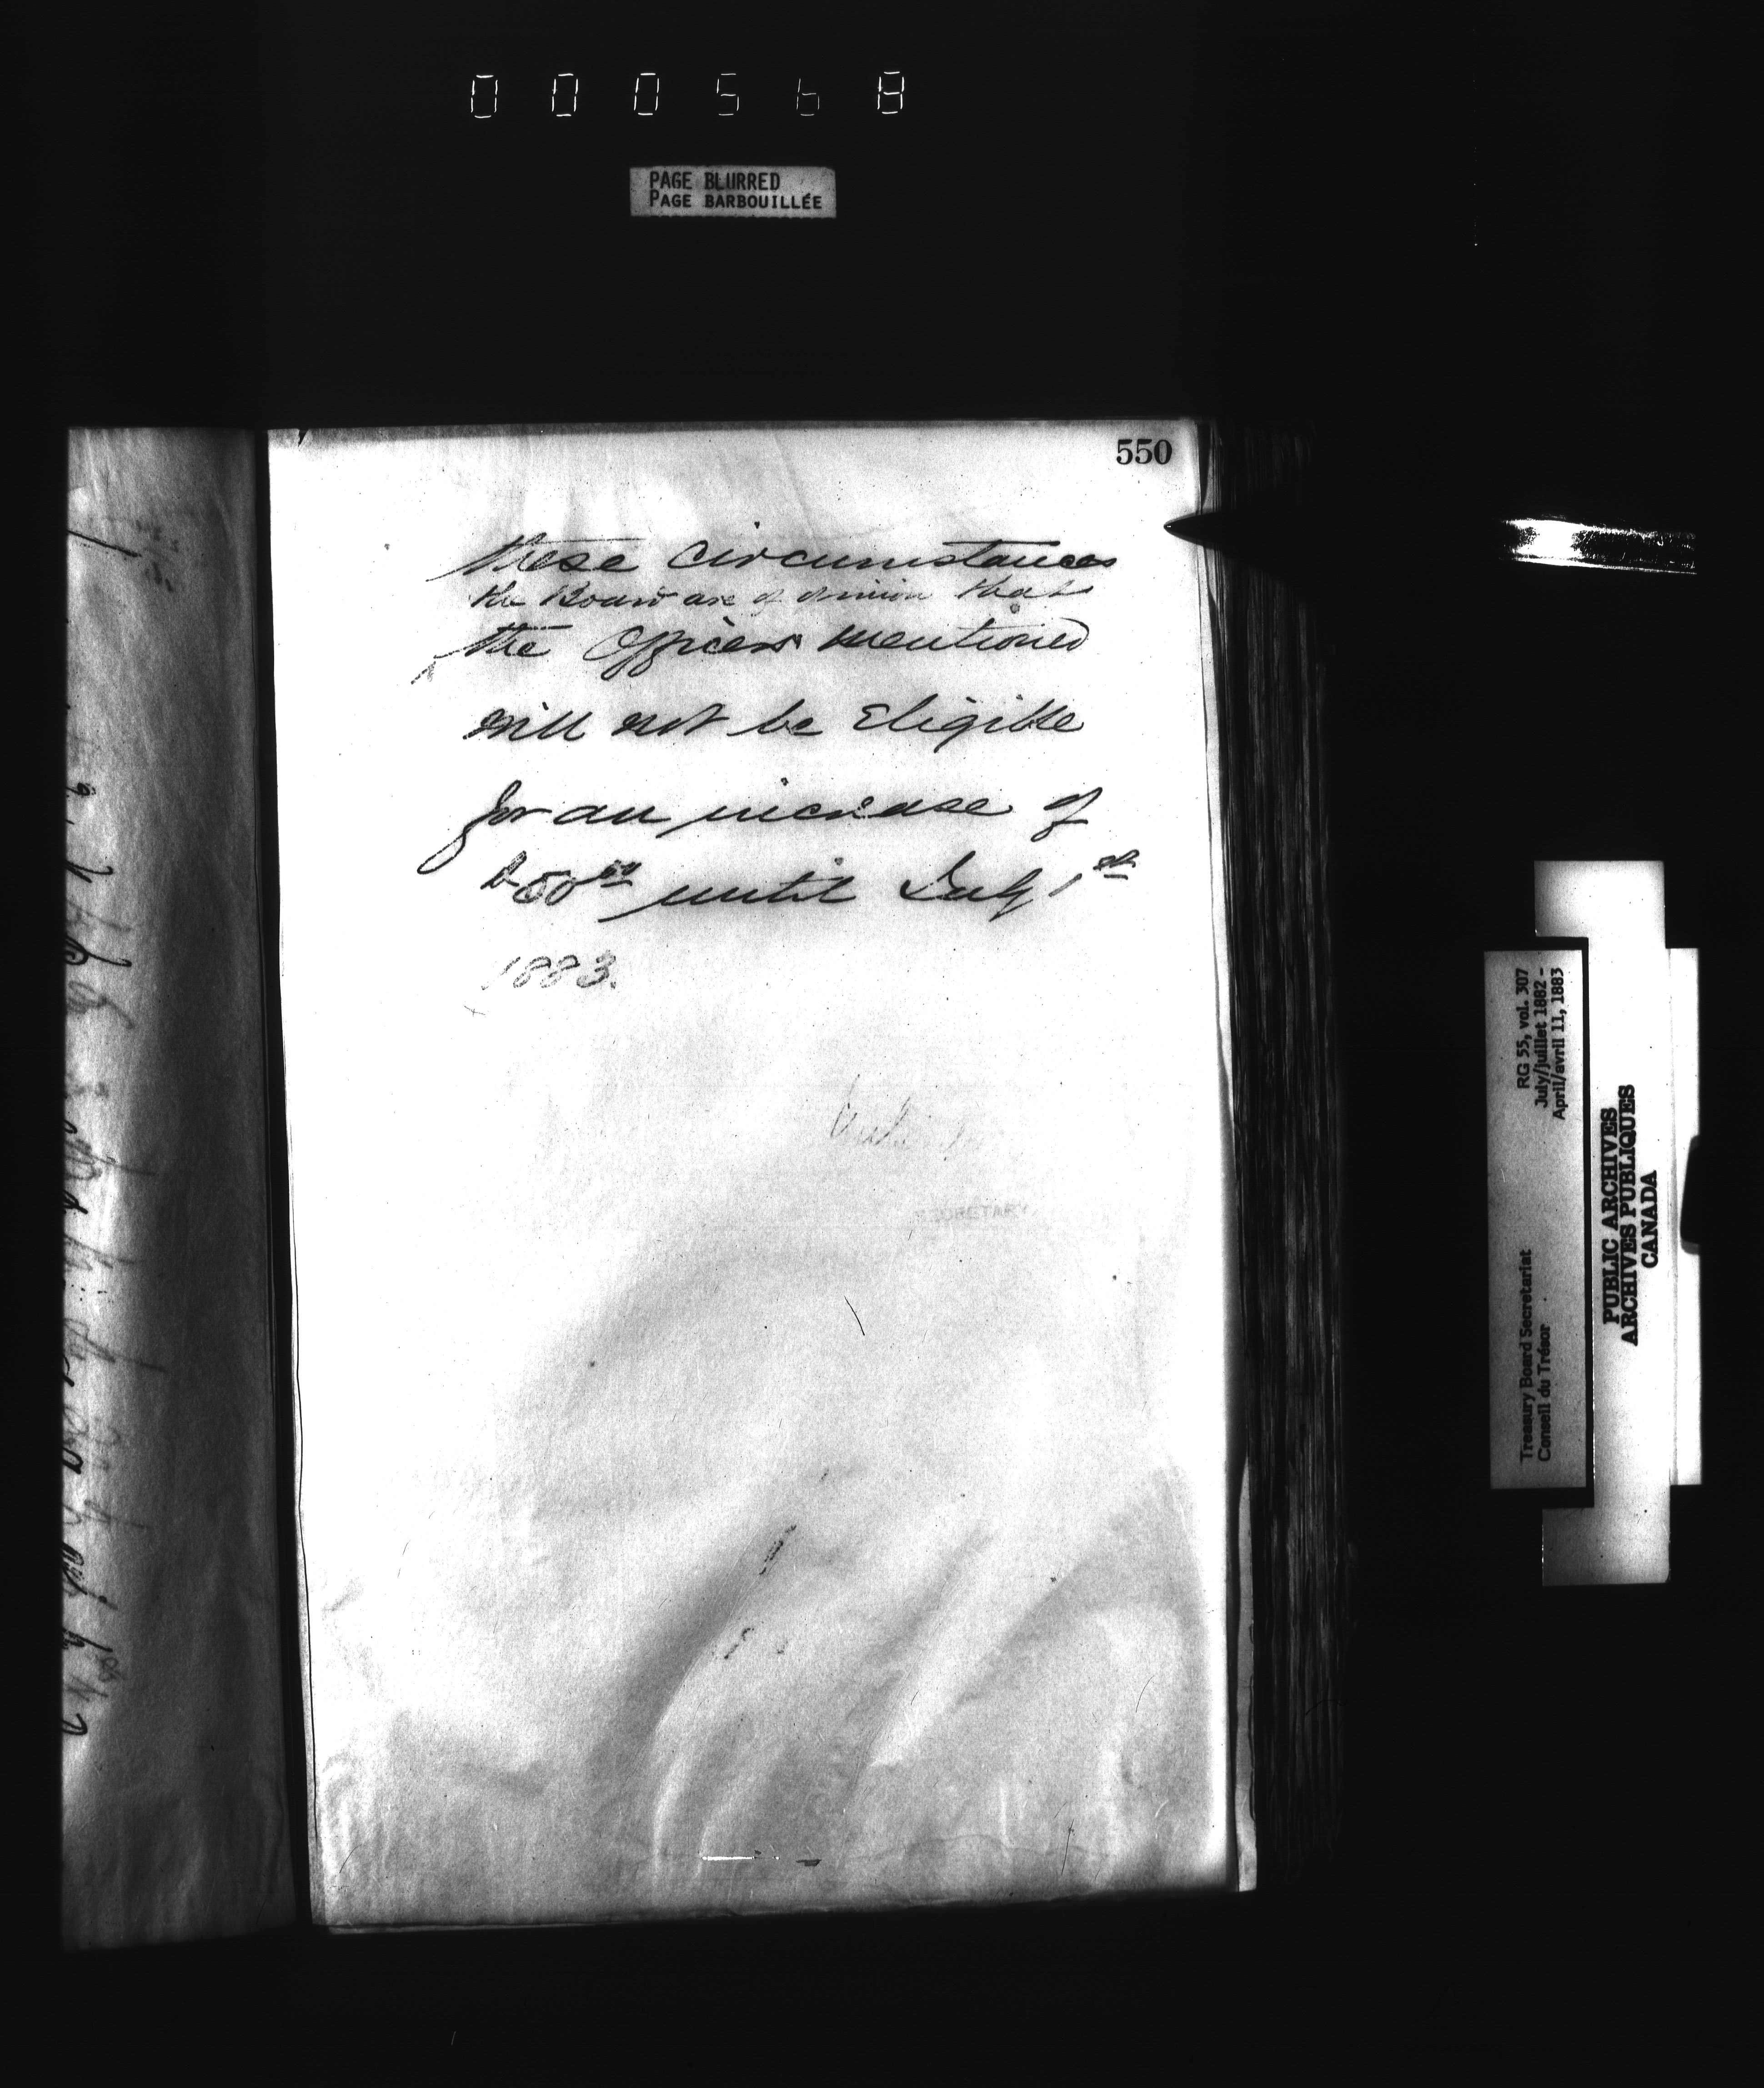 000568
PAGE BLURRED
PAGE BARBOUILLÉE
550
these circumstances
the Board are of opinion that
the Officers mentioned
will not be Eligible
for an increase of
$50.00 until July 1st
1883.
SECRETARY
RG 55, vol. 307
July/juillet 1882 -
April/avril 11, 1883
Treasury Board Secretariat
Conseil du Trésor
PUBLIC ARCHIVES
ARCHIVES PUBLIQUES
CANADA